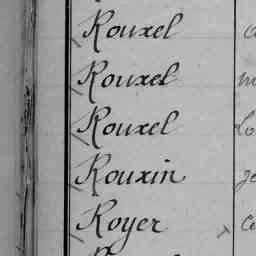 Rouxel
Rouxel
Rouxel
Rouxin
Royer